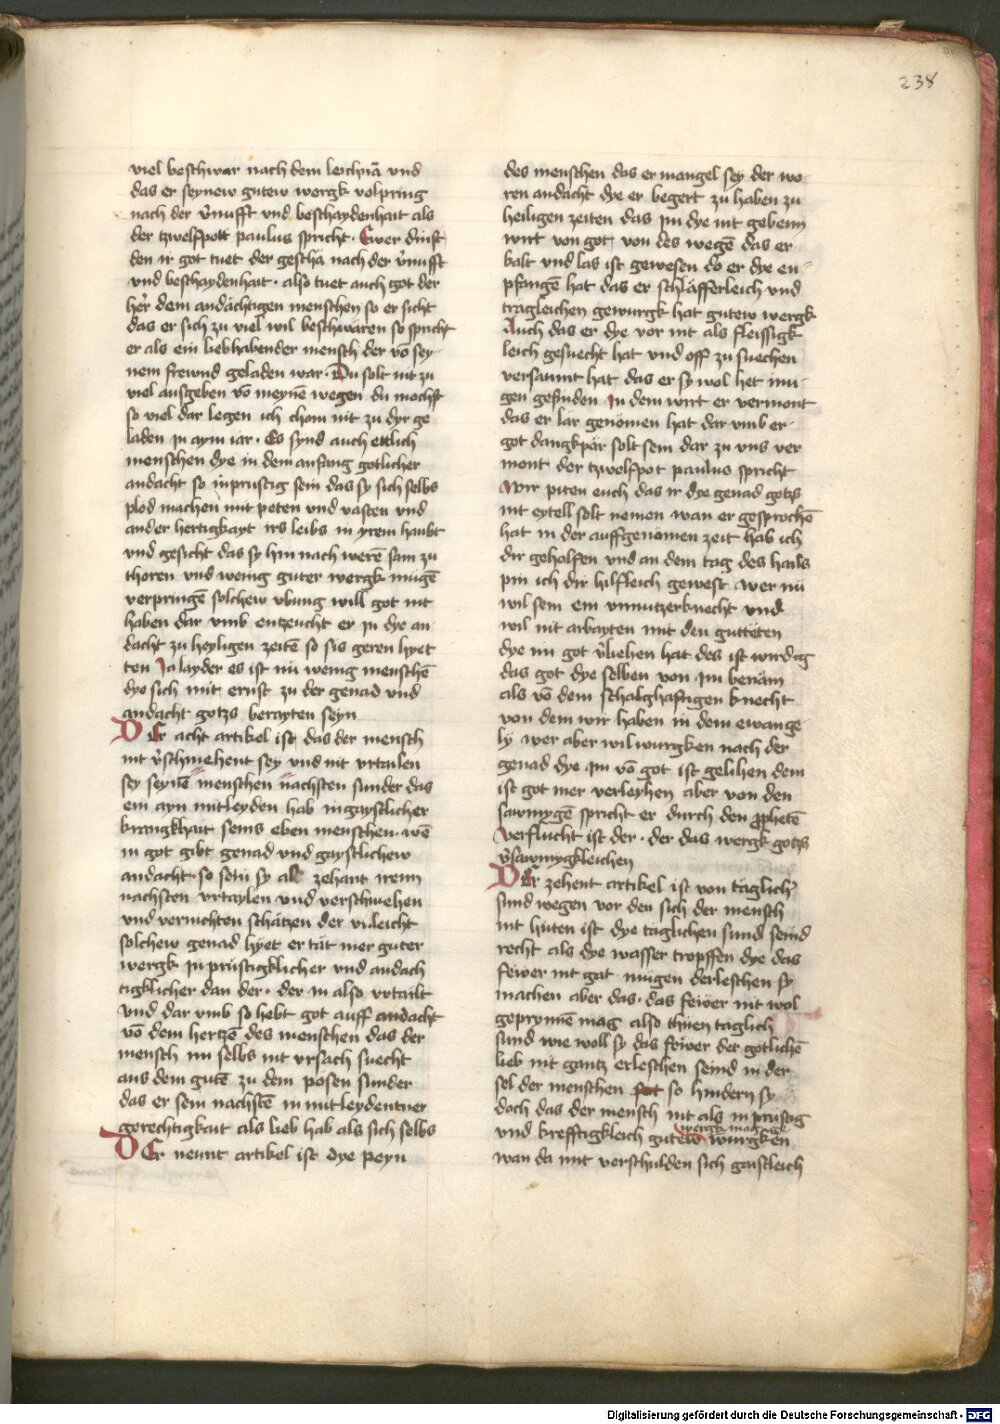 238
viel beschwar nach dem leichnā vnd
das er seynew gutew wergk volpring
nach der v̓nufft vnd beschaydenhait als
der tzwelfpott paulus spricht · Ewer dinst
den ir got tuet der geschā nach der v̓nufft
vnd beschaydenhait · also tuet auch got der
her̓ dem andächtigen menschen so er sicht
das er sich zu viel wil beschwären so spricht
er als ein liebhabender mensch der vō sey
nem frewnd geladen war · Du solt nit zu
viel ausgeben vō meynē wegen du mochst
so viel dar legen ich chom nit zu dyr ge
laden jn aym iar · Es synd auch ettlich
menschen dye in dem anfang gotlicher
andacht so inprustig sein das sy sich selbs
plöd machen mit peten vnd vasten vnd
ander hertigkayt irs leibs in yrem haubt
vnd gesicht das sy hin nach werē sam zu
thoren vnd wenig guter wergk mugē
verpringē solchew vbung will got nit
haben dar vmb entzeucht er jn dye an
dacht zu heyligen zeitē so sis geren hyet
ten Ja layder es ist nu wenig menschē
dye sich mit ernst zu der genad vnd
andacht gotzs berayten seyn
DEr acht artikel ist das der mensch
nit v̓schmehent sey vnd nit vrtailen
sey seynē menschen nachsten sunder das
ein ayn mitleyden hab in gaystlicher
krangkhait seins eben menschen · wē
in got gibt genad vnd gaystlichew
andacht so sein sy als zehant irenn
nachsten vrtaylen vnd verschmehen
vnd vernichten schätzen der villeicht
solchew genad hyet er tät mer guter
wergk jn prüstigklicher vnd andach
tigklicher dan der · der in also vrtailt
vnd dar vmb so hebt got auff andacht
vō dem hertzē des menschen das der
mensch im selbs nit vrsach suecht
aus dem gutē zu dem posen sunder
das er sein nachstē in mitleydentner
gerechtigkait als lieb hab als sich selbs
DEr neunt artikel ist dye peyn
des menschen das er mangel sey der wo
ren andacht dye er begert zu haben zu
heiligen zeiten das im dye nit gebenn
wirt von got von des wegē das er
kalt vnd las ist gewesen do er dye en
pfangē hat das er schläfferleich vnd
trägleichen gewurgk hat gutew wergk
Auch das er dye vor nit als fleissigk
leich gesuecht hat vnd off zu suechen
versaumt hat das er sy wol het mu
gen gefinden Jn dem wirt er vermont
das er lär genömen hat dar vmb er
got dangkpär solt sein dar zu vns ver
mont der tzwolfpot paulus spricht
Wir piten euch das ir dye genad gotzs
nit eytell solt nemen wan er gesprochē
hat in der auffgenömen zeit hab ich
dir geholfen vnd an dem tag des hails
pin ich dir hilfleich gewest wer nu
wil sein ein vnnutzer knecht vnd
wil nit arbayten mit den guttēten
dye im got v̓liehen hat des ist wirdig
das got dye selben von im benäm
als vō dem schalghaftigen knecht
von dem wir haben in dem ewange
ly wer aber wil wurgken nach der
genad dye im vō got ist gelihen dem
ist got mer verleyhen aber von den
sawmygē spricht er durch den prophetē
verflucht ist der · der das wergk gotzs
v̓sawmygkleichen
DEr zehent artikel ist von täglich̓
sund wegen vor den sich der mensch
nit hüten ist dye täglichen sund seind
recht als dye wasser tropffen dye das
fewer nit gar mugen derleschen sy
machen aber das · das fewer nit wol
geprynnē mag also thuen täglich
sund wie woll sy das fewer der gotlichē
lieb nit gantz erleschen seind in der
sel der menschen so hindern sy
doch das der mensch nit als inprüstig
wergk mag ge
vnd krefftigkleich gutew wurgken
wan da mit verschulden sich gaistleich
Digitalisierung gefördert durch die Deutsche Forschungsgemeinschaft - DFG